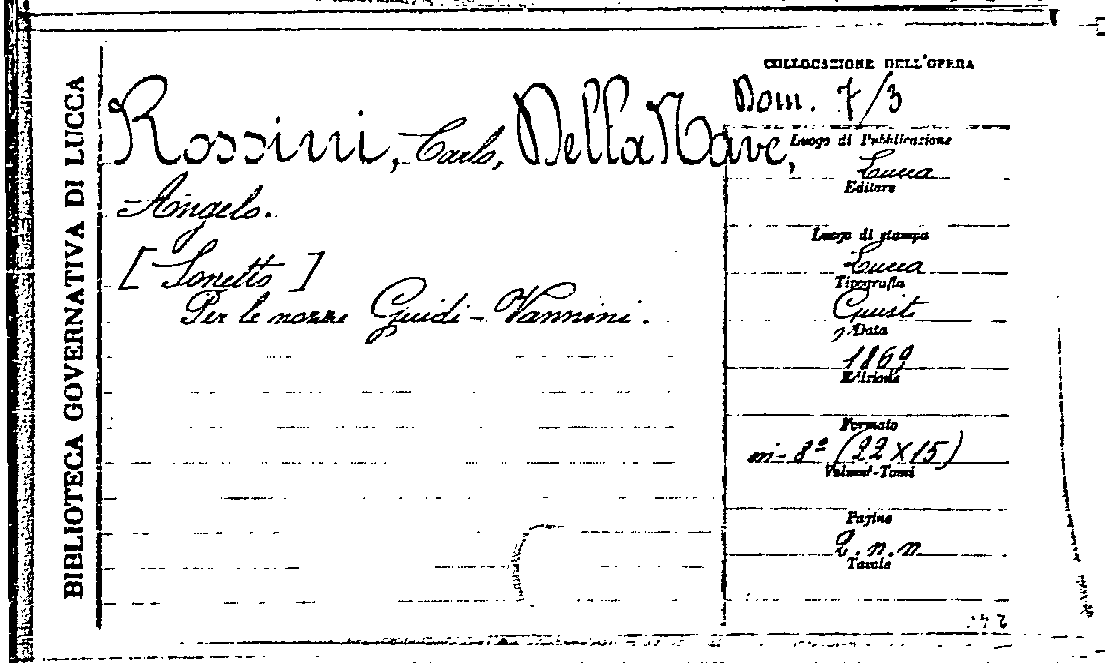 BIBLIOTECA GOVERNATIVA DI LUCCA
Rossini, Carlo, Della Nave,
Angelo.
[Sonetto]
Per le nozze Guidi-Vannini.
COLLOCAZIONE DELL'OPERA
Dom. 7/3
Luogo di Pubblicazione
Lucca
Editore
Luogo di stampa
Lucca
Tipografia
Giusti
Data
1869
Edizione
Formato
in-8º (22x15)
Volumi-Tomi
Pagine
2. n. n
Tavole